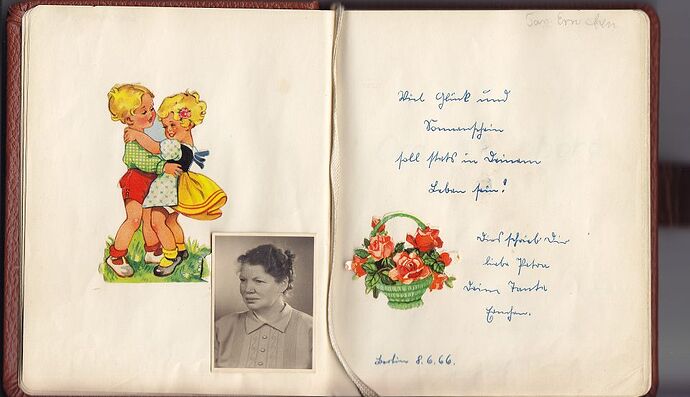 Viel Glück und
Sonnenschein
soll stets in Deinem
Leben sein!
Dies schrieb Dir
liebe Petra
Deine Tante
Berlin 8.6.66.